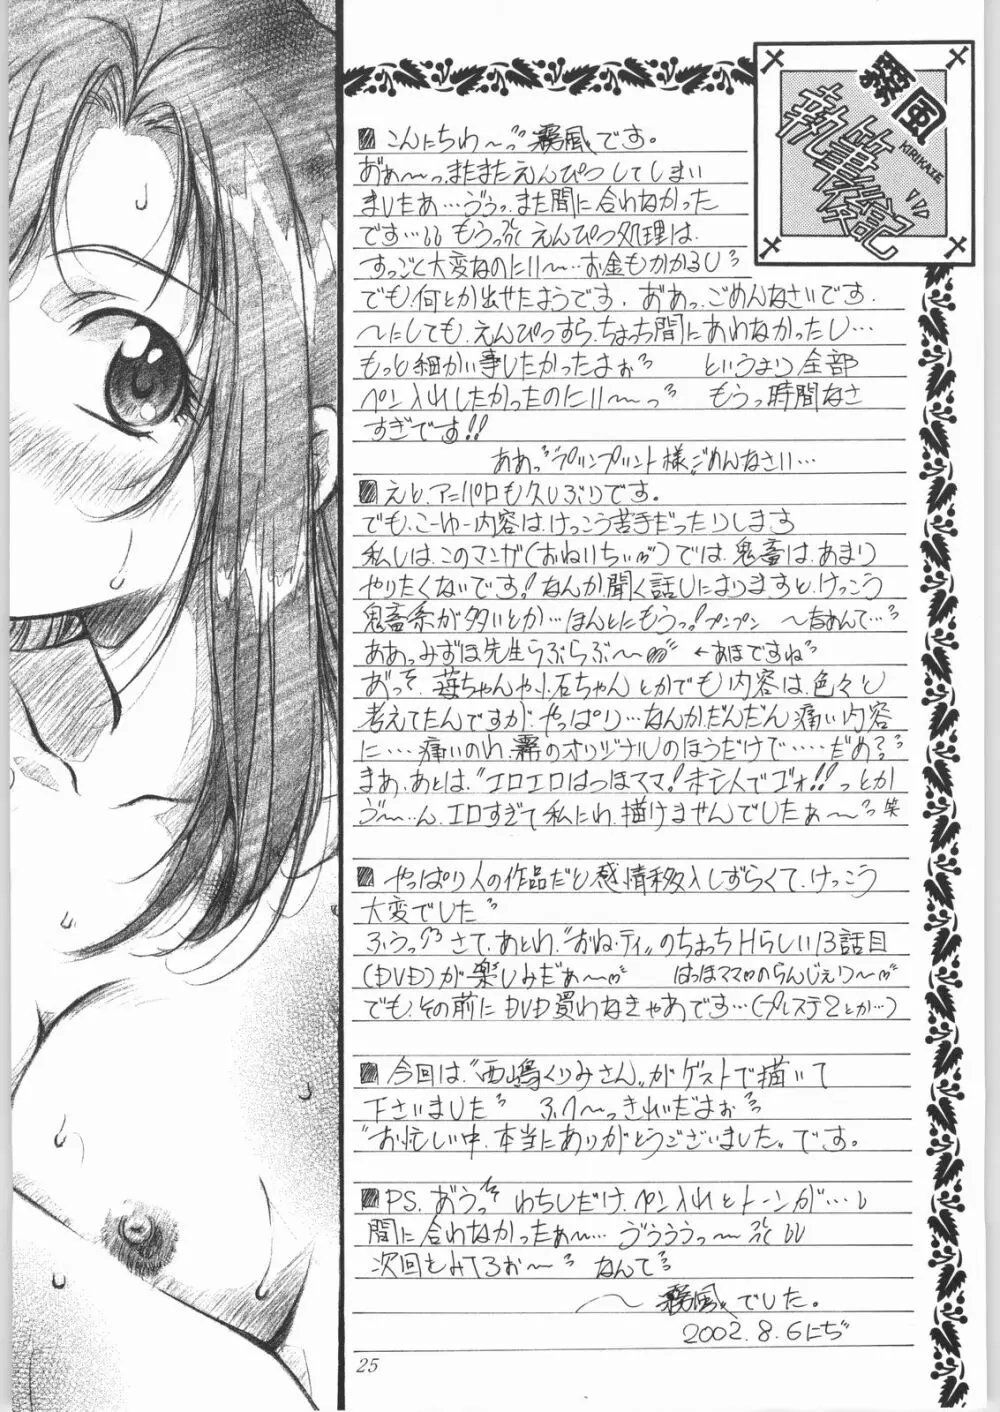 霧風
KIRIKAZE
執筆後記
■こんにちわ〜っ 霧風です。
おぁ〜っ、またまたえんぴつしてしまい
ましたぁ…ううっ、また間に合わなかった
です… もうっ えんぴつ処理は、
すっごく大変なのに!!〜…お金もかかるし
でも、何とか出せたようです、おあっ、ごめんなさいです、
〜にしても、えんぴつすら、ちょっち間にあわなかったし…
もっと細かい事したかったよぉ というより全部
ペン入れしたかったのに!!〜っ もうっ時間なさ
すぎです!!
ああっプリンプリント様ごめんなさい…
■えと、アニパロも久しぶりです。
でも、こーゆー内容は、けっこう苦手だったりします
私しは、このマンガ(おねいちぃ)では、鬼畜は、あまり
やりたくないです!なんか、聞く話しによりますと、けっこう
鬼畜系が多いとか…ほんとにもうっ!プンプン 〜なぁんて…
ああっみずほ先生らぶらぶ〜 ←あほですね
あっそ、苺ちゃんや小石ちゃんとかでも内容は、色々と
考えてたんですが、やっぱり…なんかだんだん痛い内容
に…痛いのわ、霧のオリジナルのほうだけで……だめ?
まあ、あとは、"エロエロはつほママ!未亡人でゴォ!!っとか
う〜…ん、エロすぎて私にわ、描けませんでしたぁ〜 笑
■やっぱり人の作品だと感情移入しずらくて、けっこう
大変でした
ふうっ さて、あとわ、"おね・ティ"のちょっちHらしい13話目
(DVD)が楽しみだぁ〜 はつほママのらんじぇり〜
でも、その前にDVD買わなきゃあです…(プレステ2とか…)
■今回は、"西嶋くりみさん"がゲストで描いて
下さいました ふい〜っきれいだよぉ
"お忙しい中、本当にありがとうございました"です。
■PS. おうっ わちしだけ、ペン入れとトーンが…
間に合わなかったぁ〜… ううううっ〜
次回をみてろぉ〜 なんて
〜霧風、でした。
2002.8.6にぢ
25